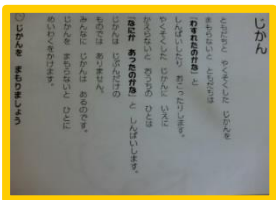 じかん
ともだちと やくそくした じかんを
まもらないと ともだちは
「わすれたのかな」と
しんぱいしたり おこったりします。
やくそくした じかんに いえに
かえらないと おうちの ひとは
「なにか あったのかな」と しんぱいします。
じかんは じぶんだけの
ものでは ありません。
みんなに じかんは あるのです。
じかんを まもらないと ひとに
めいわくをかけます。
じかんを まもりましょう